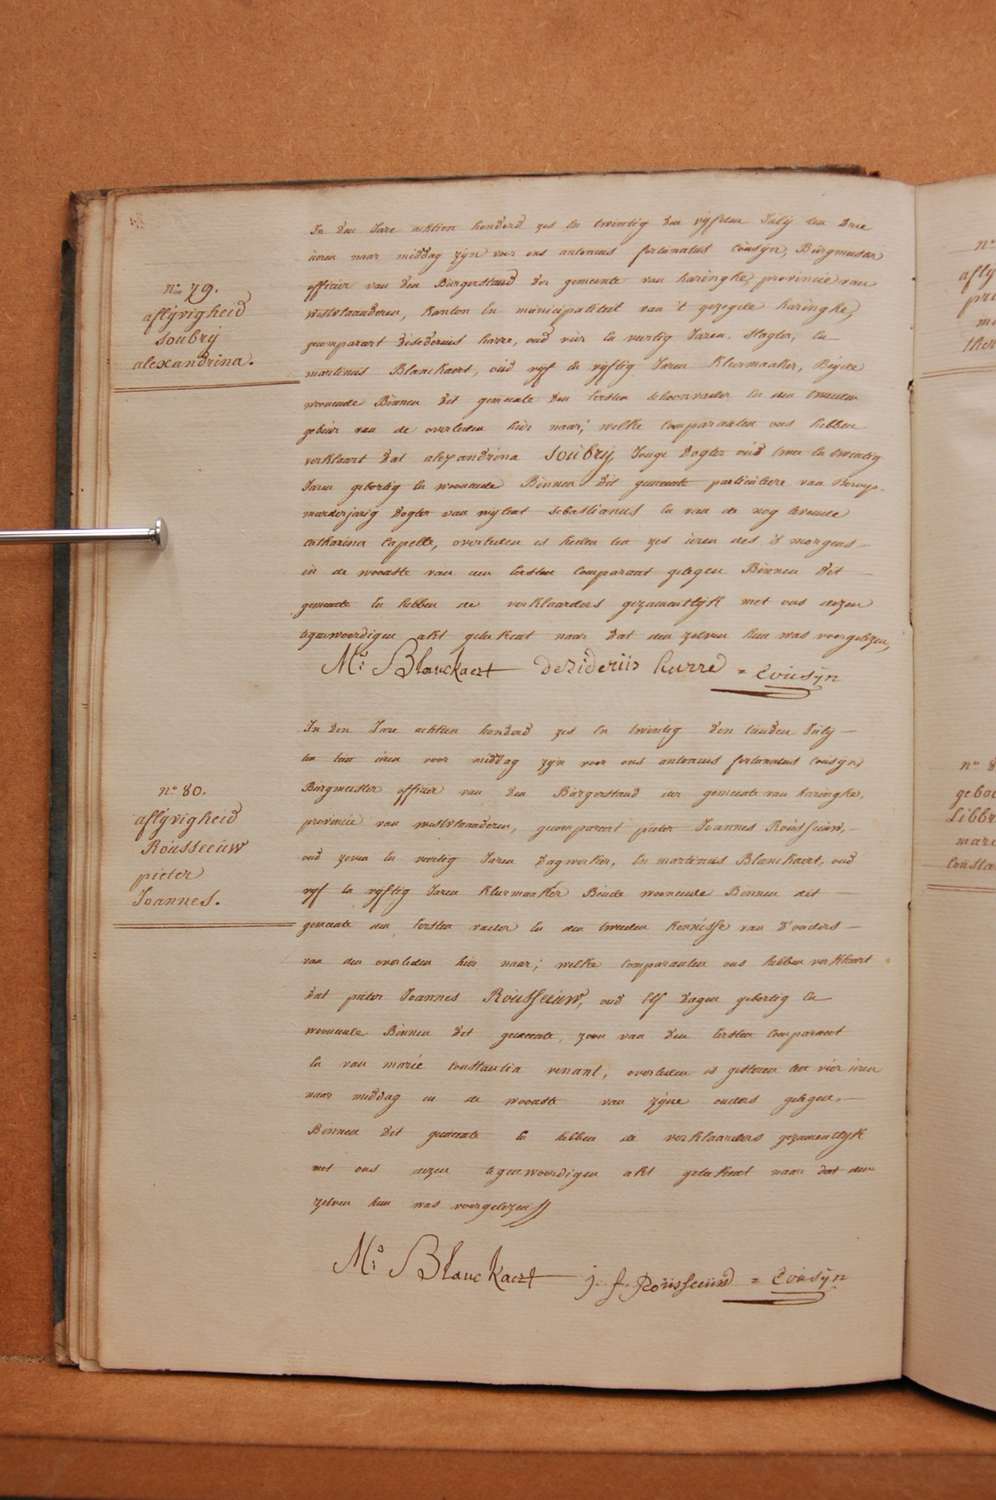 nº 79.
aflyvigheid
soubry
alexandrina.
In den Jare achtien honderd zes en twintig den vyfden July ten drie
ieren naer middag zyn voor ons antonius fortunatus Cousyn, Burgmeester
officier van den Burgerstand der gemeente van haringhe, provincie van
westvlaanderen, kanton en municipaliteit van 't gezegde haringhe,
gecomparert disederius harre, oud vier en veertig Jaren slagter, en
martinus Blanckaert, oud vyf en vyftig Jaren kleermaaker, Beyde
woonende Binnen dit gemeente den eersten schoonvader en den tweeden
gebuer van de overleden hier naer; welke comparanten ons hebben
verklaart dat alexandrina Soubry Jonge dogter oud twee en twintig
Jaren gebortig en woonende Binnen dit gemeente particuliere van
marderjarig dogter van wylent sebastianus en van de nog levende
catharina Capelle, overleden is heden ten zes ieren des 's morgens
in de woonste van den eersten comparant gelegen Binnen dit
gemeente en hebben de verklaarders gezamentlyk met ons dezen
tegenwoordigen akt geteekent naer dat den zelven hun was voorgelezen,
M: Blanckaert deziderüs harre = Cousyn
nº 80.
aflyvigheid
Rousseeuw
pieter
Joannes.
In den Jare achtien honderd zes en twintig den tienden July
ten tien ieren voor middag zyn voor ons antonius fortunatus Cousyn,
Burgmeester officier van den Burgerstand der gemeente van haringhe,
provincie van westvlaanderen, gecomparert pieter Joannes Rousseeuw,
oud zeven en veertig Jaren dagwerker, en martinus Blanckaert, oud
vyf en vyftig Jaren kleermaaker Beide woonende Binnen dit
gemeente den eersten vader en den tweeden kennisse van d'ouders
van den overleden hier naer; welke comparanten ons hebben verklaart
dat pieter Joannes Rousseeuw, oud elf dagen gebortig en
woonende Binnen dit gemeente, zoon van den eersten comparant
en van marie constantia venant, overleden is gisteren ten vier ieren
naer middag in de woonste van zyne ouders gelegen,
Binnen dit gemeente en hebben de verklaarders gezamentlyk
met ons dezen tegenwoordigen akt geteekent naer dat den
zelven hun was voorgelezen
M: Blanckaert j. f. Rousseeuw = Cousyn